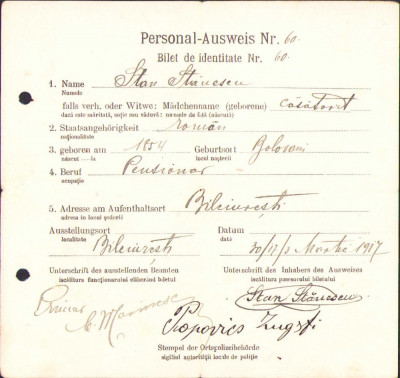 Personal-Ausweis Nr. 60
Bilet de identitate Nr. 60.
1. Name Stan Stănescu
Numele
falls verh. oder Witwe: Mädchenname (geborene) căsătorit
dacă este măritată, soție sau văduvă: numele de fată (născută)
2. Staatsangehörigkeit Român
naționalitate
3. geboren am 1854 Geburtsort
născut la locul nașterii
4. Beruf Pensionar
ocupație
5. Adresse am Aufenthaltsort Bilciurești
adresa in locul șederii
Ausstellungsort Datum
localitate Bilciurești dată 30/17/3 Martie 1917
Unterschrift des ausstellenden Beamten Unterschrift des Inhabers des Ausweises
iscălitura funcționarului eliberând biletul iscălitura posesorului biletului
Primar Stan Stănescu
Popovics
Stempel der Ortspolizeibehörde
sigiliul autorității locale de poliție